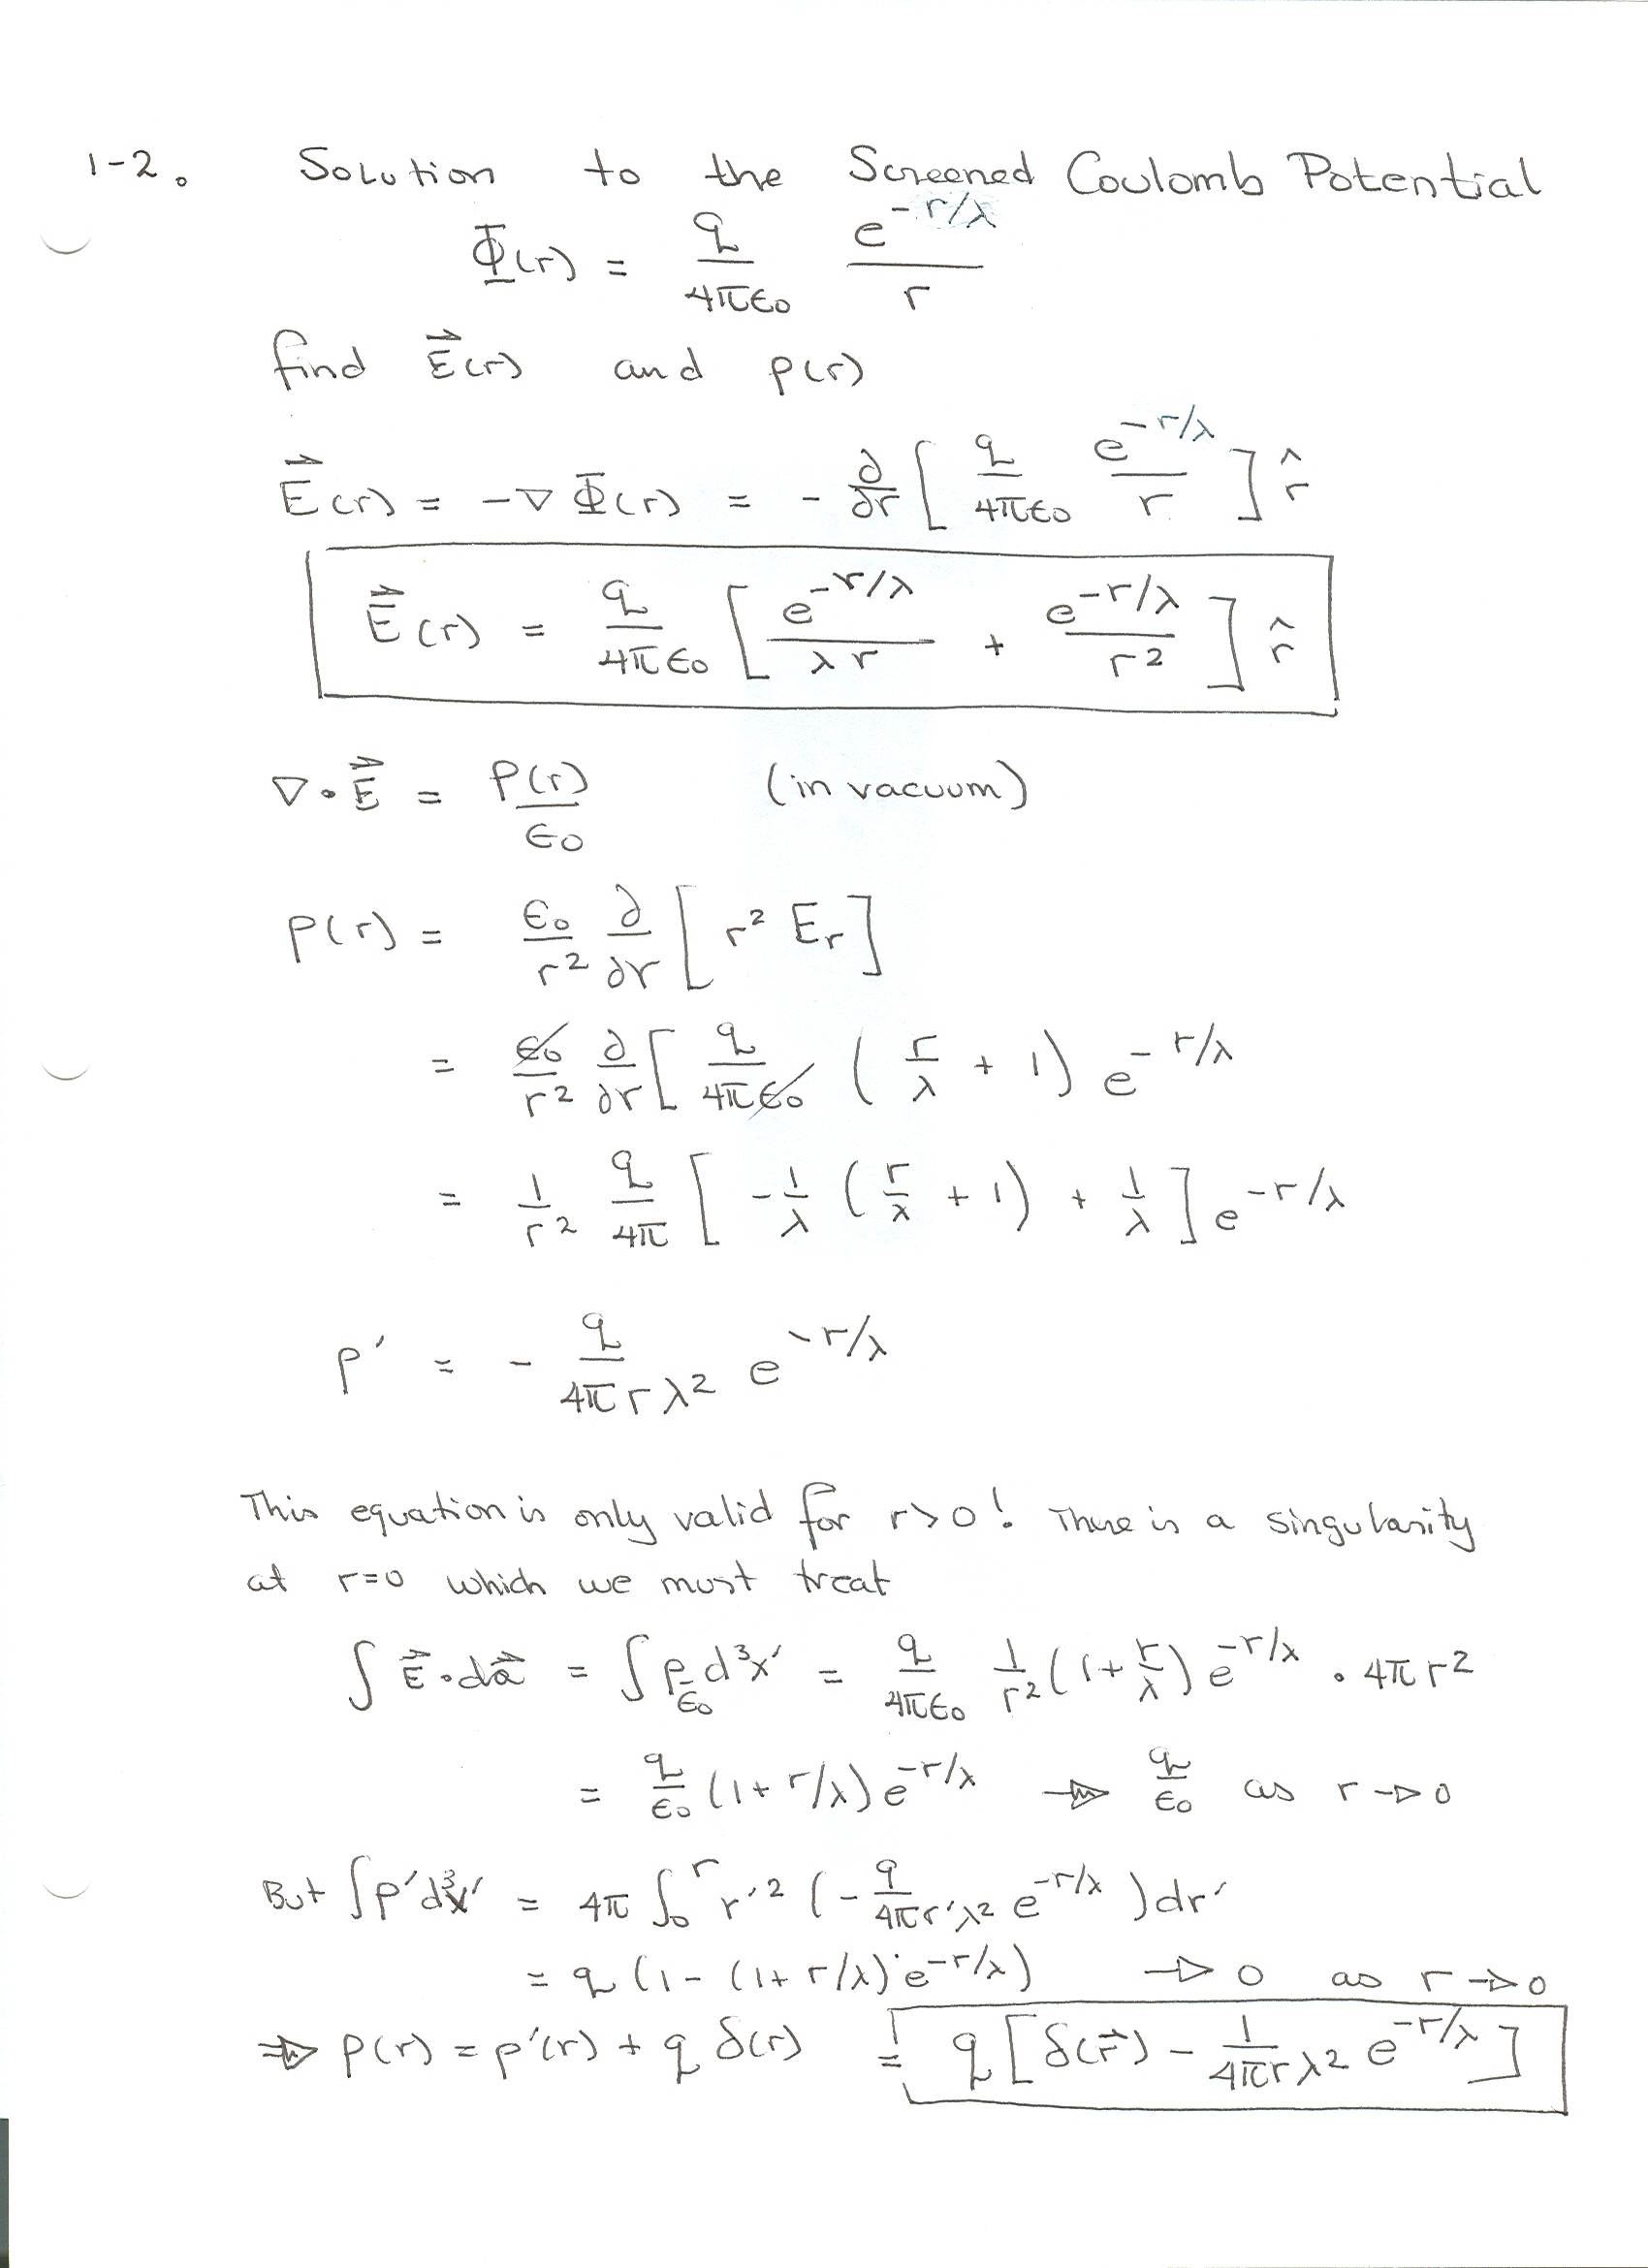 1-2. Solution to the Screened Coulomb Potential
Φ(r) = q/4πε₀ e^(-r/λ)/r
find E⃗(r) and ρ(r)
E⃗(r) = -∇Φ(r) = -∂/∂r [ q/4πε₀ e^(-r/λ)/r ] r̂
E⃗(r) = q/4πε₀ [ e^(-r/λ)/λr + e^(-r/λ)/r² ] r̂
∇·E⃗ = ρ(r)/ε₀ (in vacuum)
ρ(r) = ε₀/r² ∂/∂r [ r² Er ]
= ε₀/r² ∂/∂r [ q/4πε₀ ( r/λ + 1 ) e^(-r/λ)
= 1/r² q/4π [ -1/λ ( r/λ + 1 ) + 1/λ ] e^(-r/λ)
ρ' = - q/4πrλ² e^(-r/λ)
This equation is only valid for r>0! There is a singularity
at r=0 which we must treat
∫ E⃗·da⃗ = ∫ ρ/ε₀ d³x' = q/4πε₀ 1/r² (1 + r/λ) e^(-r/λ) · 4πr²
= q/ε₀ (1 + r/λ) e^(-r/λ) → q/ε₀ as r → 0
But ∫ρ'd³x' = 4π ∫₀^r r'² (- q/4πr'λ² e^(-r/λ) ) dr'
= q (1 - (1 + r/λ) e^(-r/λ)) → 0 as r → 0
⇒ ρ(r) = ρ'(r) + q δ(r) = q [ δ(r⃗) - 1/4πrλ² e^(-r/λ) ]